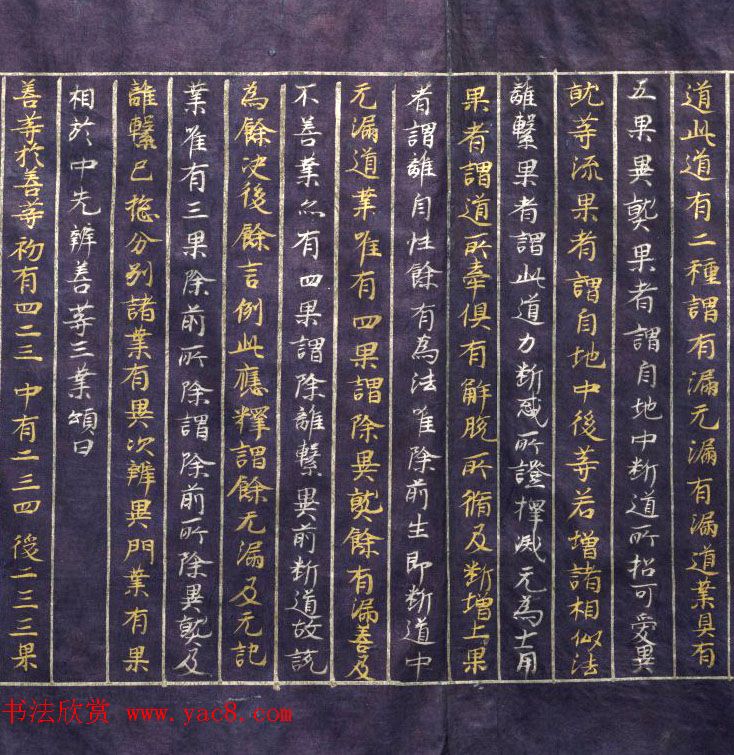 道此道有二種謂有漏无漏有漏道業具有
五果異熟果者謂自地中断道所招可愛異
熟等流果者謂自地中後等若增諸相似法
離繫果者謂此道力断惑所證擇滅无為士用
果者謂道所牽俱有解脫所脩及断增上果
者謂離自性餘有為法唯除前生即断道中
无漏道業唯有四果謂除異熟餘有漏善及
不善業亦有四果謂除離繫異前断道故說
為餘次後餘言例此應釋謂餘无漏及无記
業唯有三果除前所除謂除前所除異熟及
離繫已捴分别諸業有果次辨異門業有果
相於中先辨善等三業頌曰
善等於善等初有四二三中有二三四後二三三果
书法欣赏 www.yac8.com